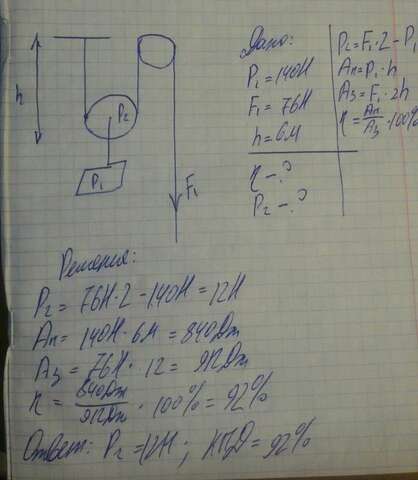 h
P₂
P₁
F₁
Дано:
P₁=140Н
F₁=76Н
h=6м
η-?
P₂-?
P₂=F₁·2-P₁
Aп=P₁·h
Aз=F₁·2h
η=Aп/Aз·100%
Решения:
P₂=76Н·2-140Н=12Н
Aп=140Н·6м=840Дж
Aз=76Н·12=912Дж
η=840Дж/912Дж·100%=92%
Ответ: P₂=12Н; КПД=92%